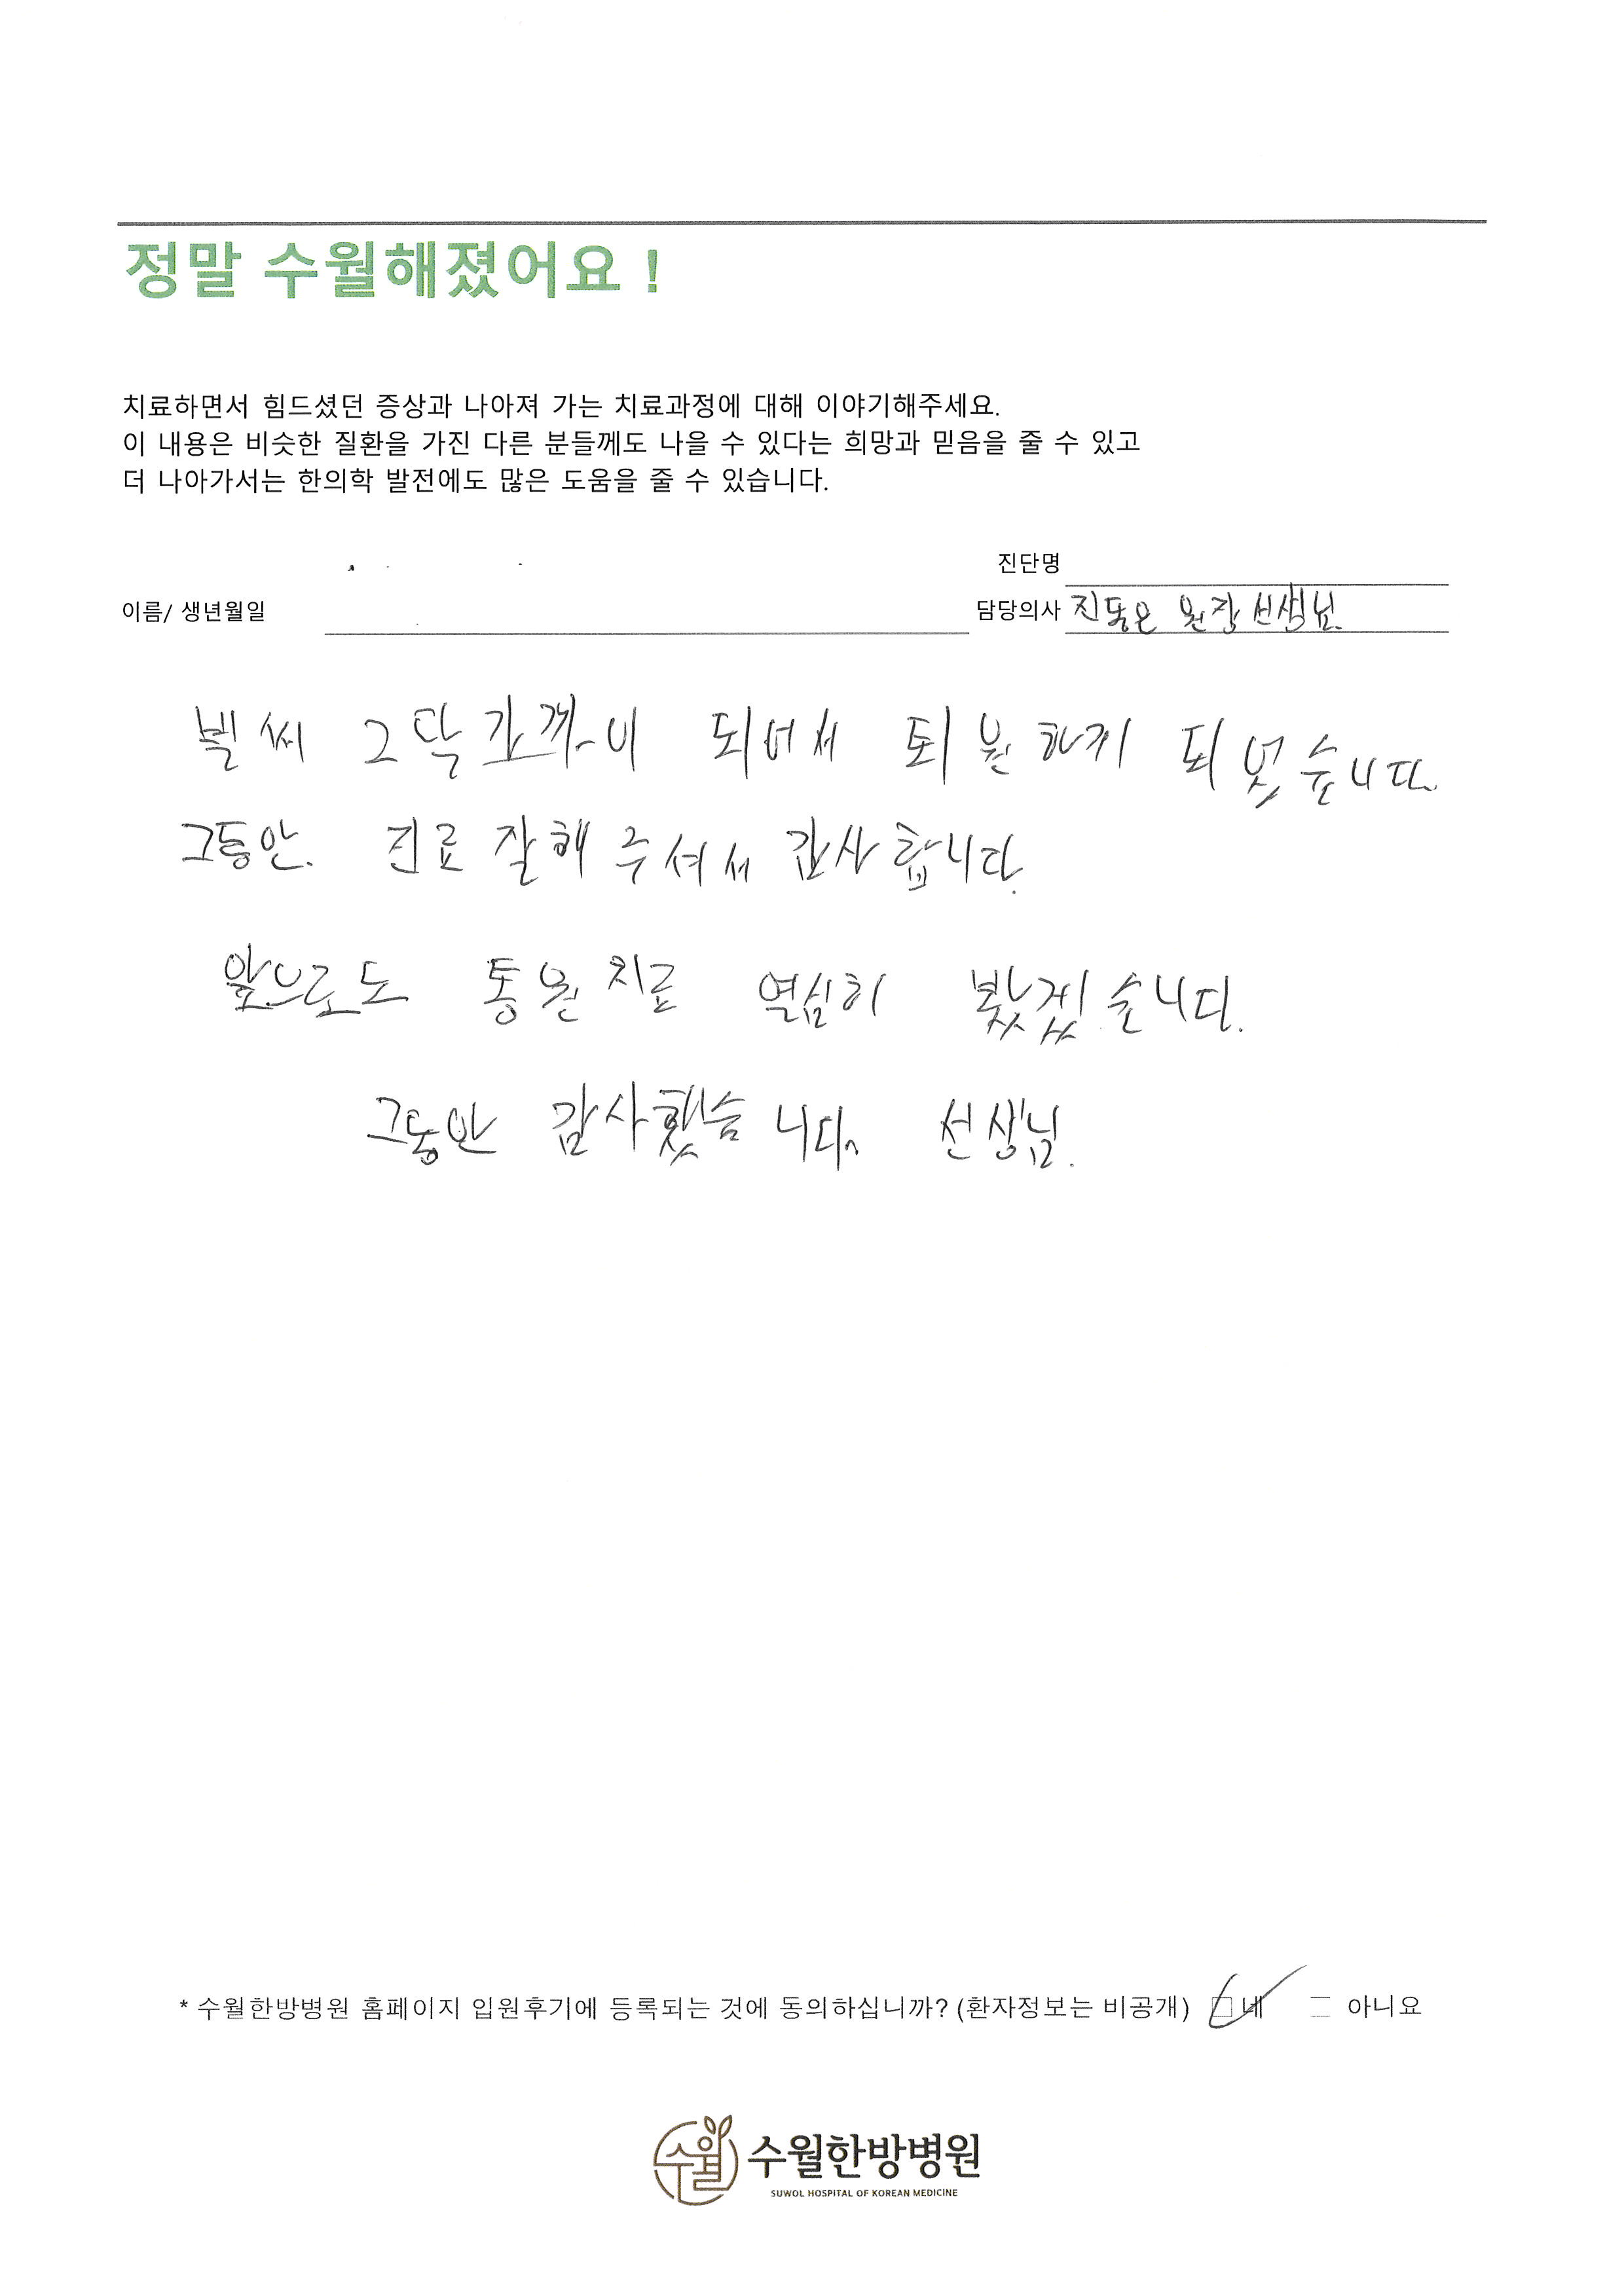 정말 수월해졌어요 !
치료하면서 힘드셨던 증상과 나아져 가는 치료과정에 대해 이야기해주세요.
이 내용은 비슷한 질환을 가진 다른 분들께도 나을 수 있다는 희망과 믿음을 줄 수 있고
더 나아가서는 한의학 발전에도 많은 도움을 줄 수 있습니다.
진단명
이름/ 생년월일
담당의사 진동은 원장 선생님.
벌씨 2달 가까이 되어서 퇴원하게 되었습니다.
그동안. 진료 잘해 주셔서 감사합니다.
앞으로도 통원 치료 열심히 봤겠습니다.
그동안 감사했습니다. 선생님.
* 수월한방병원 홈페이지 입원후기에 등록되는 것에 동의하십니까? (환자정보는 비공개) 네 아니요
수월
수월한방병원
SUWOL HOSPITAL OF KOREAN MEDICINE